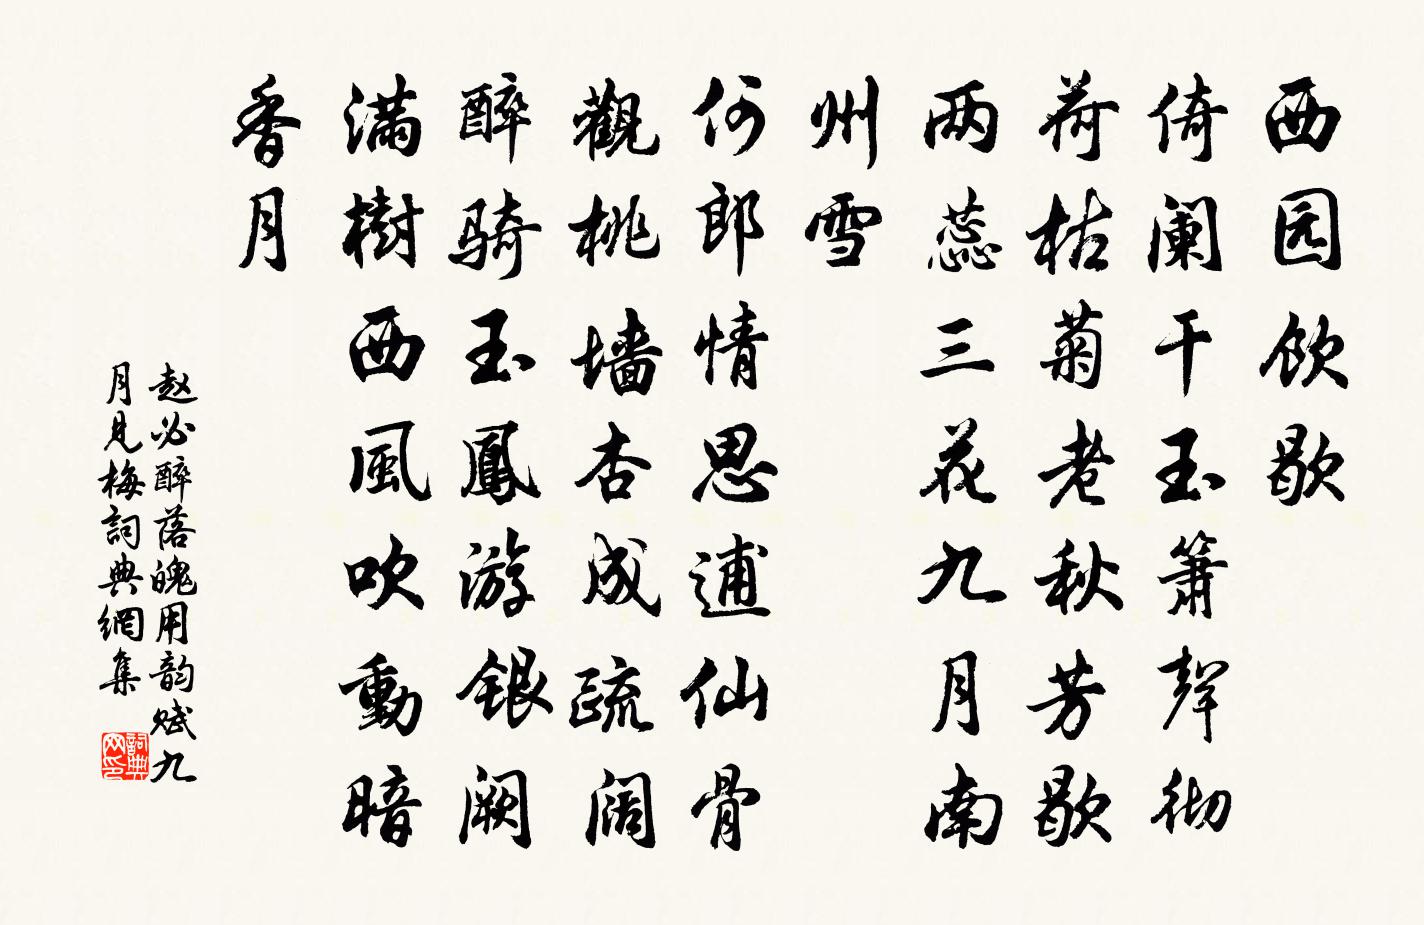 西园饮歇
倚阑干玉箫聲彻
荷枯菊老秋芳歇
两蕊三花九月南
州雪
何郎情思逋仙骨
觀桃墙杏成疏阔
醉骑玉鳳游銀阙
满樹西風吹動暗
香月
赵必醉落魄用韵赋九
月見梅詞典網集
詞典网印